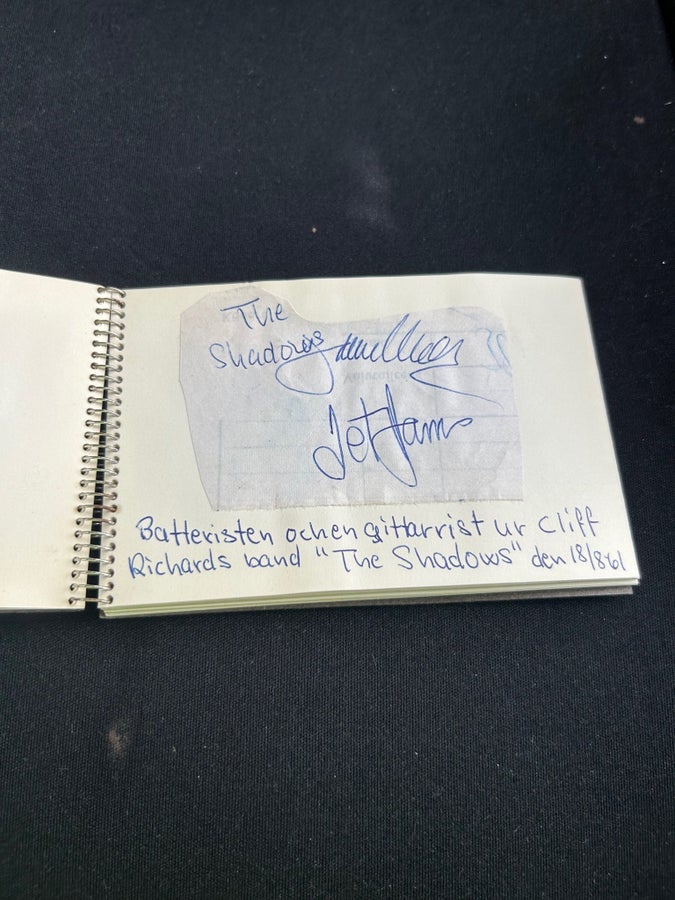 The
Shadows
Jet Harris
Batteristen och en gittarrist ur Cliff
Richards band "The Shadows" den 18/8 61